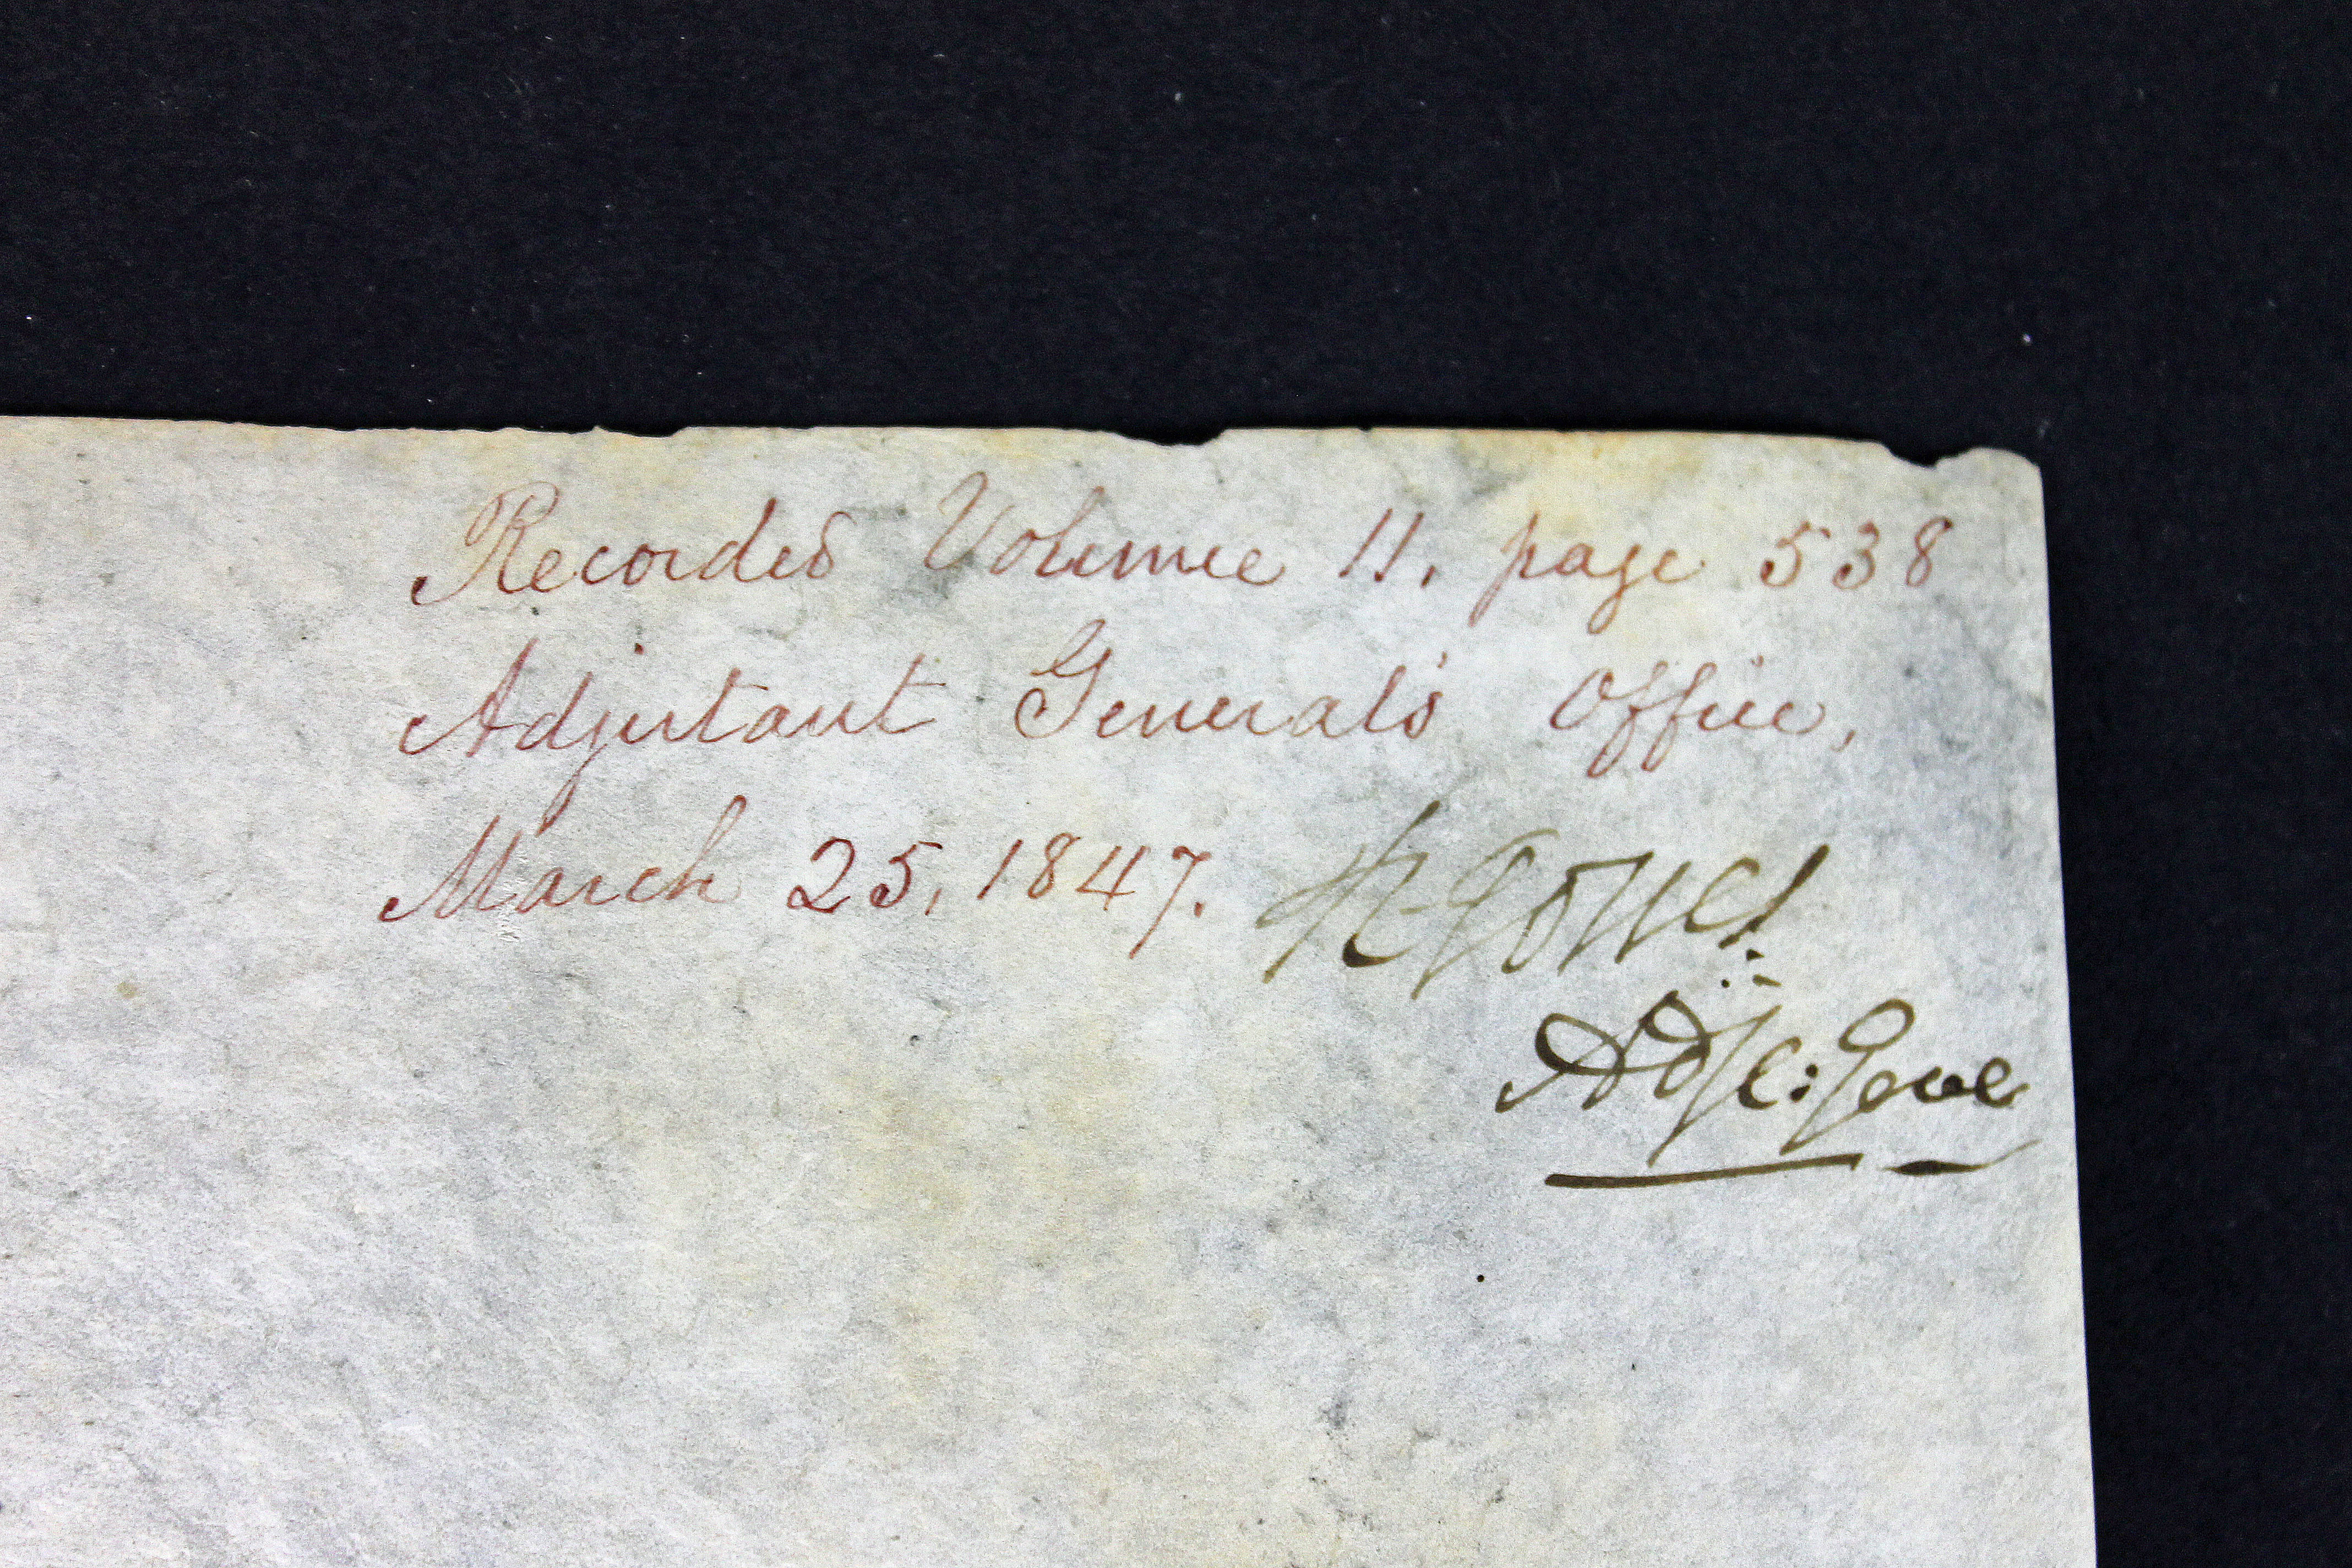 Recorded Volume 11, page 538
Adjutant General's Office,
March 25, 1847. R. Jones
Adjt: Genl